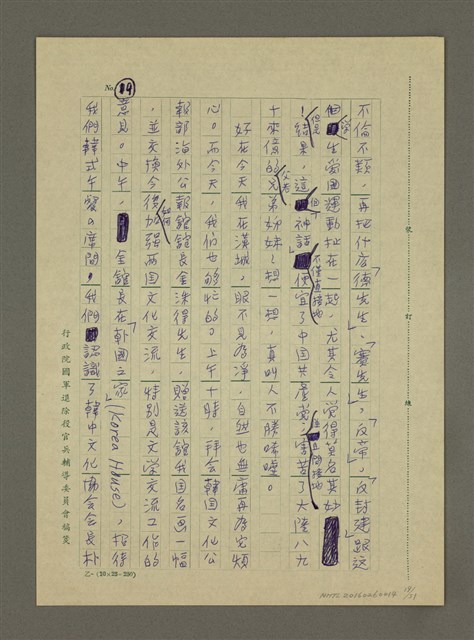 No. 19
不倫不類,再把什麼「德先生」、「賽先生」,「反帝」,「反封建」跟這
個學生愛國運動扯在一起,尤其令人覺得莫名其妙
!但是結果,這個「神話」不僅直接地便宜了中国共產党,並且間接地害苦了大陸八九
十來億的父老兄弟姊妹!想一想,真叫人不勝唏噓。
好在今天我在漢城,眼不見為淨,自然也無需再為它煩
心。而今天,我们也夠忙的。上午十時,拜会韓国文化公
報部海外公報館館長金洙得先生,贈送該館我国名画一幅
,並交換今後如何加强两国文化交流,特別是文学交流工作的
意見。中午,金館長在「韓國之家」(Korea House),招待
我們韓式午餐の席間,我們認識了韓中文化協会会長朴
裝 訂 線
行政院國軍退除役官兵輔導委員會稿箋
乙-(10×23=230)
NMTL20160260014
19/27